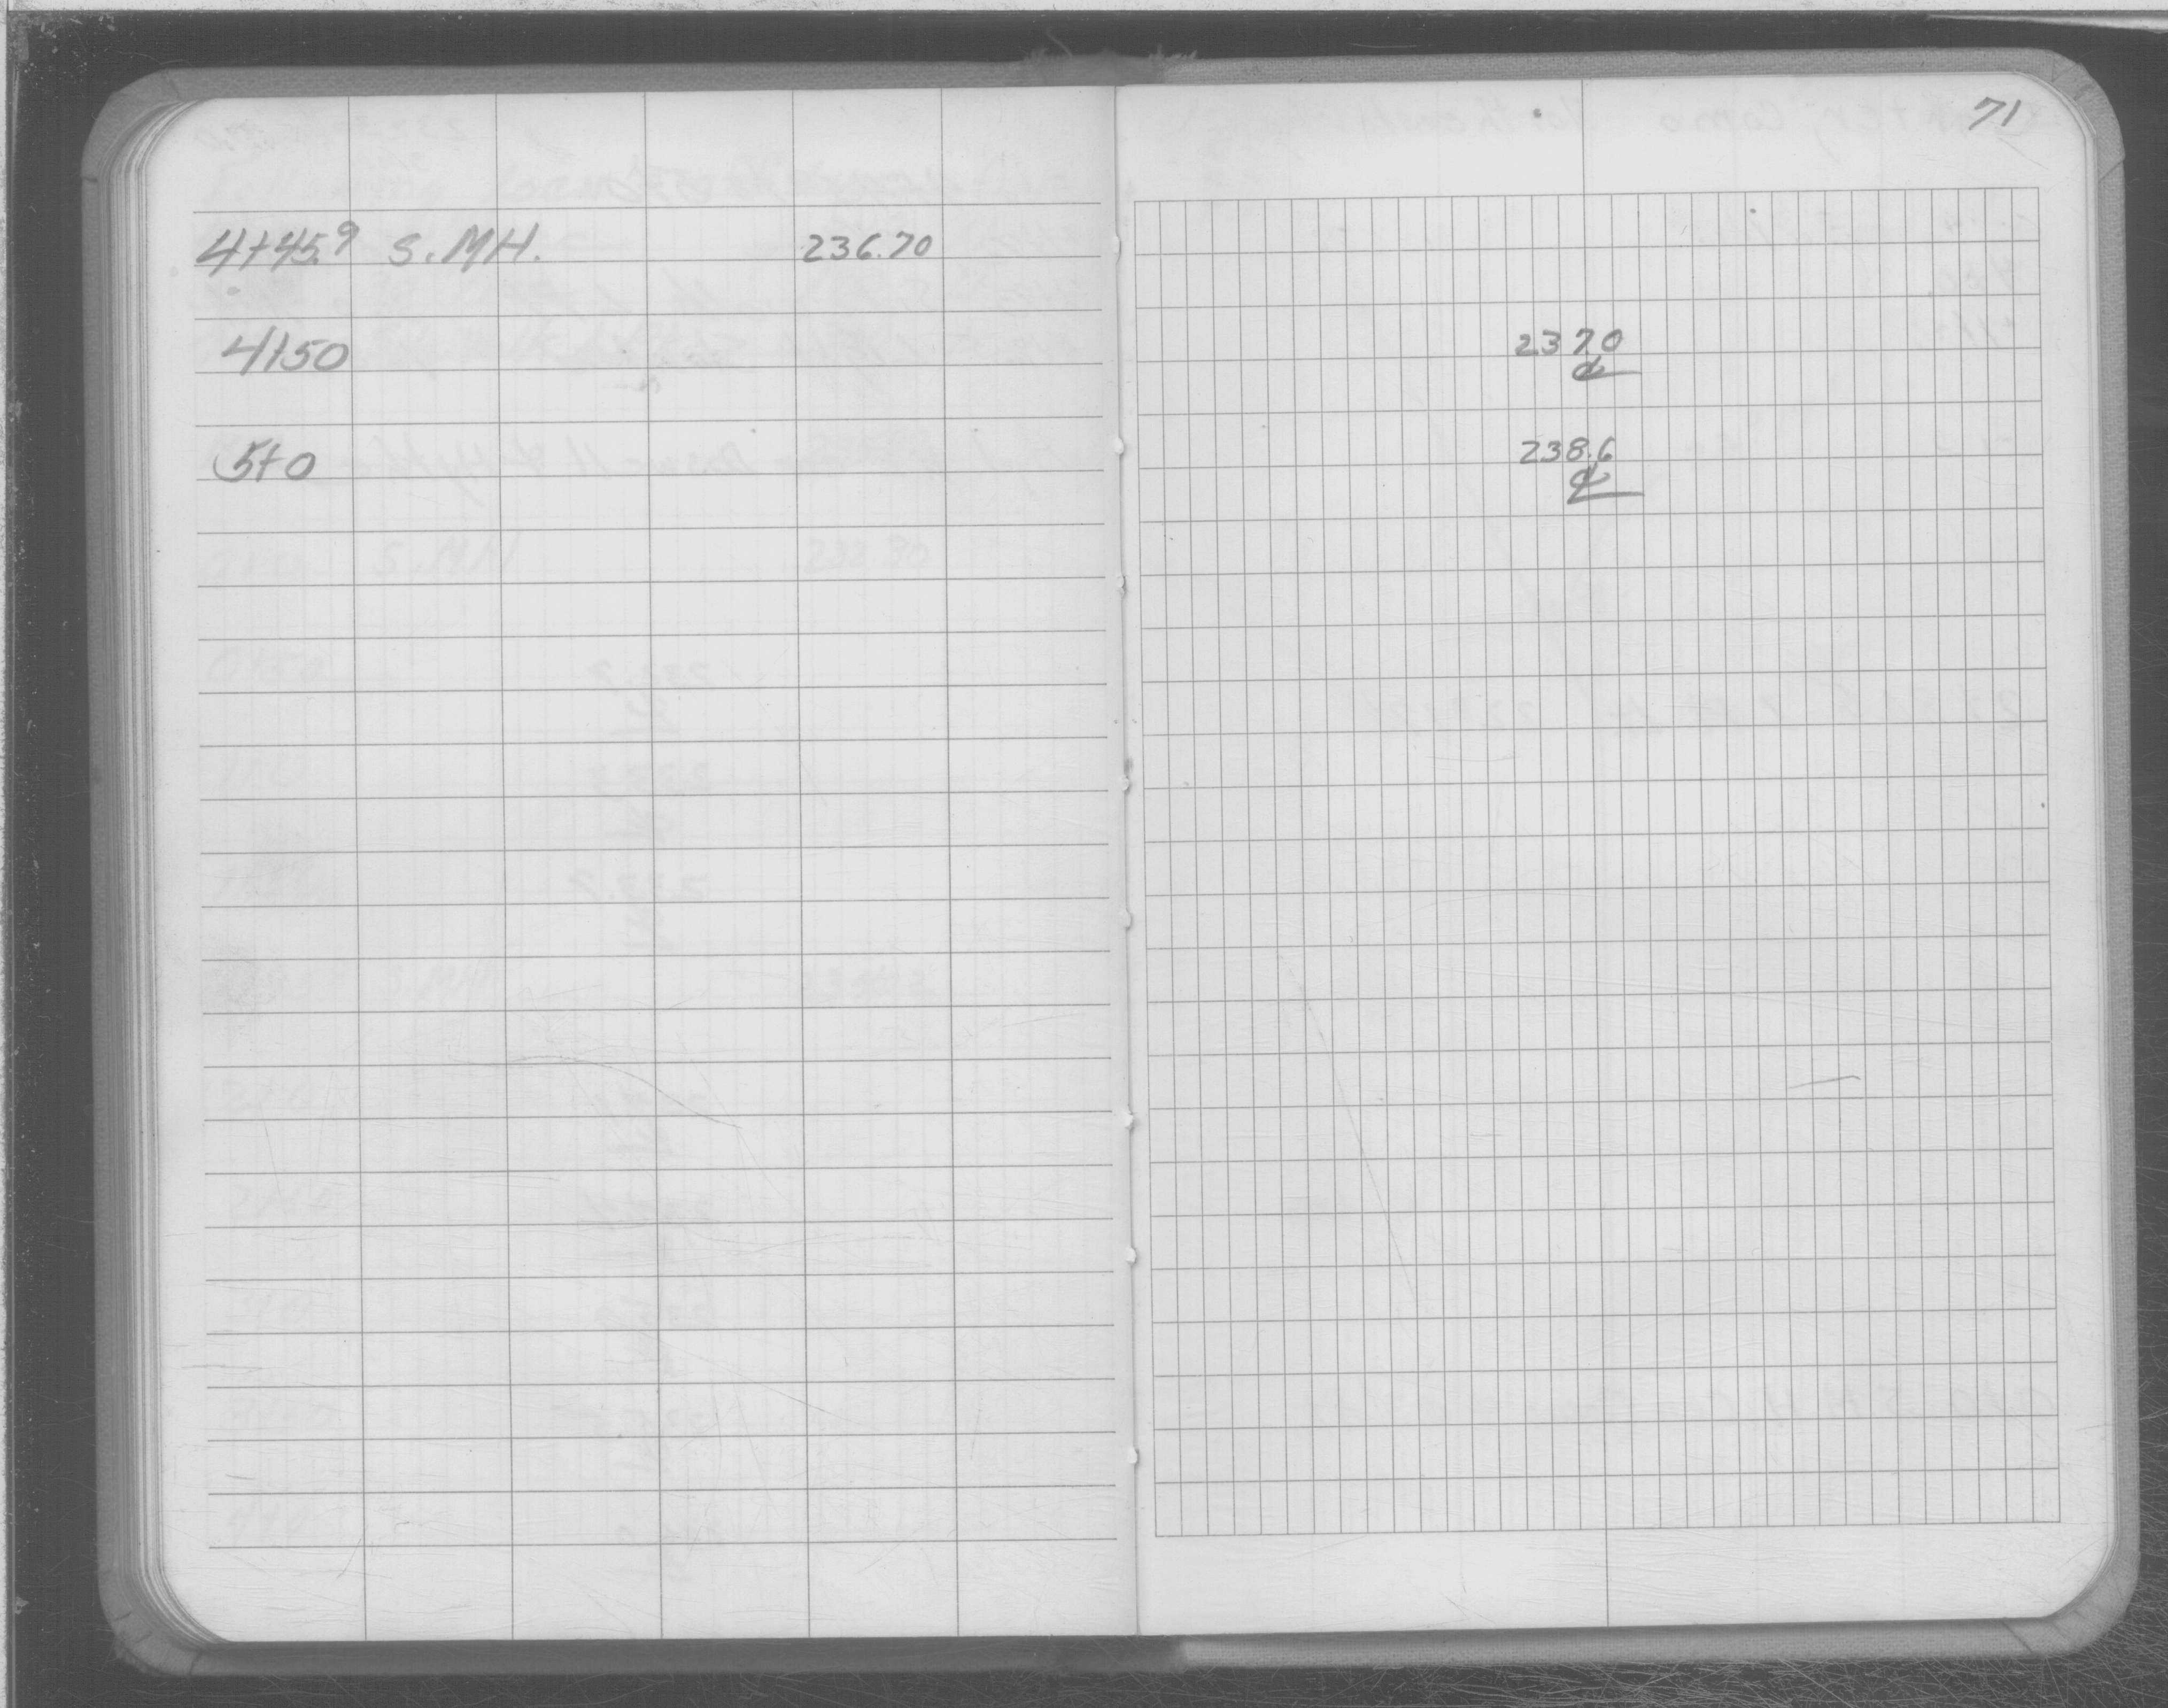 71
4+45.9 S.MH. 236.70
4+50 237.0
℄
5+0 238.6
℄